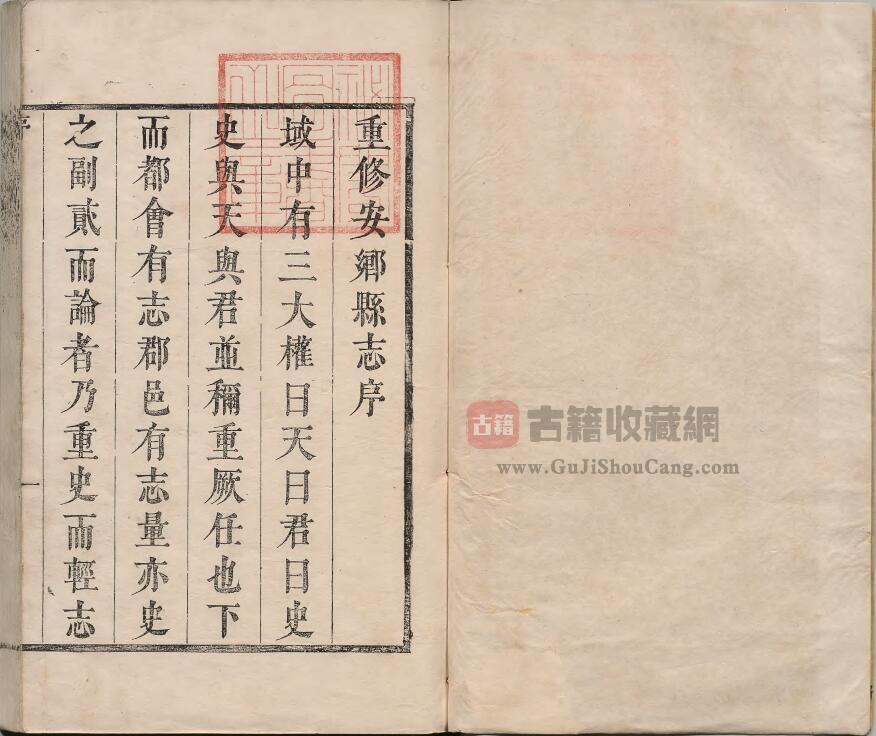 重修安鄉縣志序
域中有三大權曰天曰君曰史
史與天與君並稱重厥任也下
而都會有志郡邑有志量亦史
之副貳而論者乃重史而輕志
一
古籍
古籍收藏網
www.GuJiShouCang.com